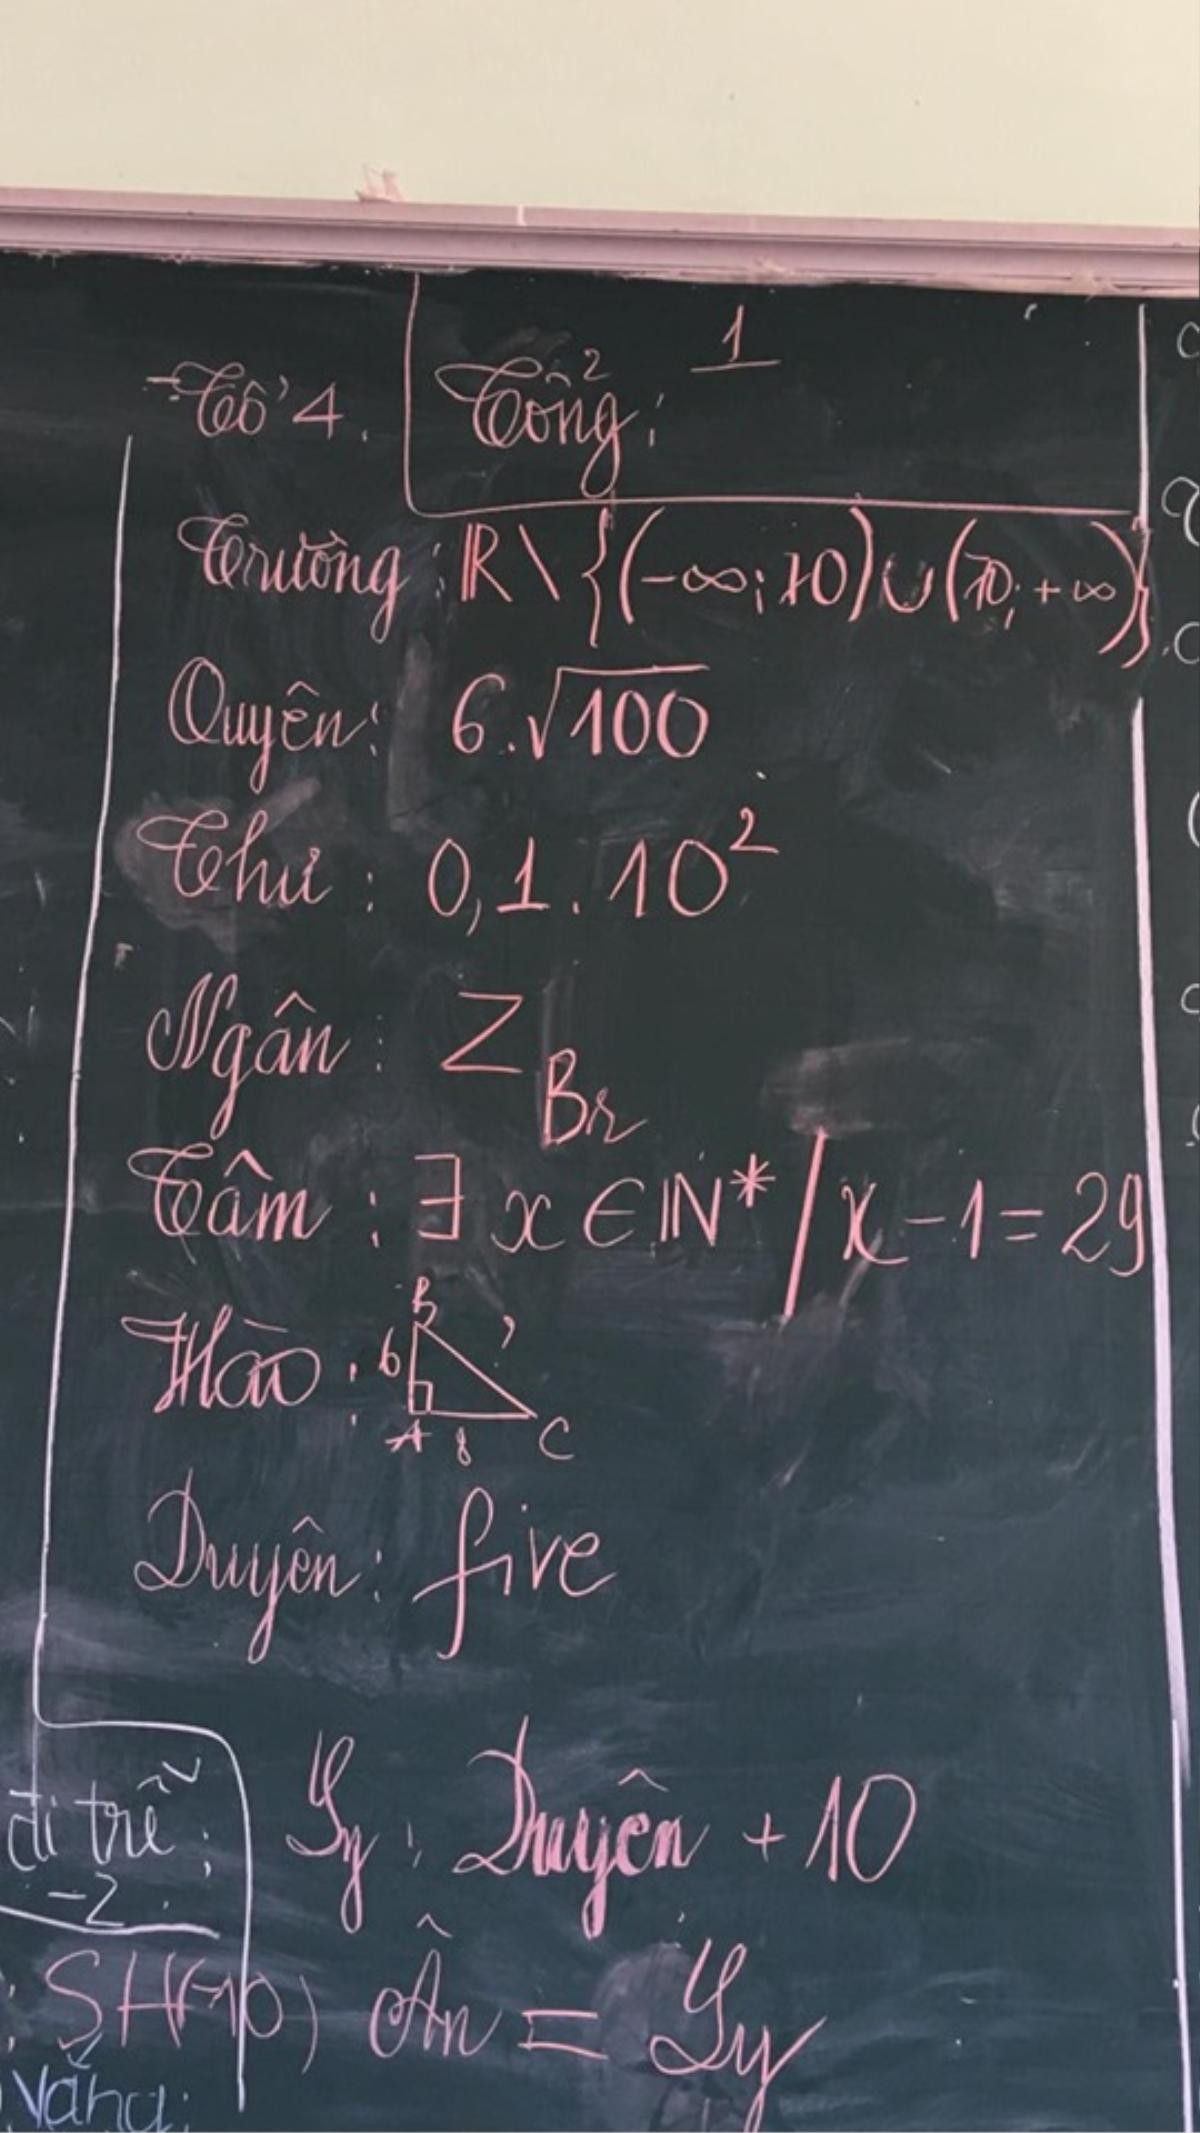 Tổ 4.
Tổng: 1
Trường: ℝ \ {(-∞; 10) ∪ (10; +∞)}
Quyên: 6.√100
Thư: 0,1. 10²
Ngân: Z_Br
Tâm: ∃ x ∈ ℕ* / x - 1 = 29
Hào: B 6 ? A 8 C
Duyên: five
đi trễ:
-2
Ly: Duyên + 10
SH(-10)
Ân = Ly
vắng: